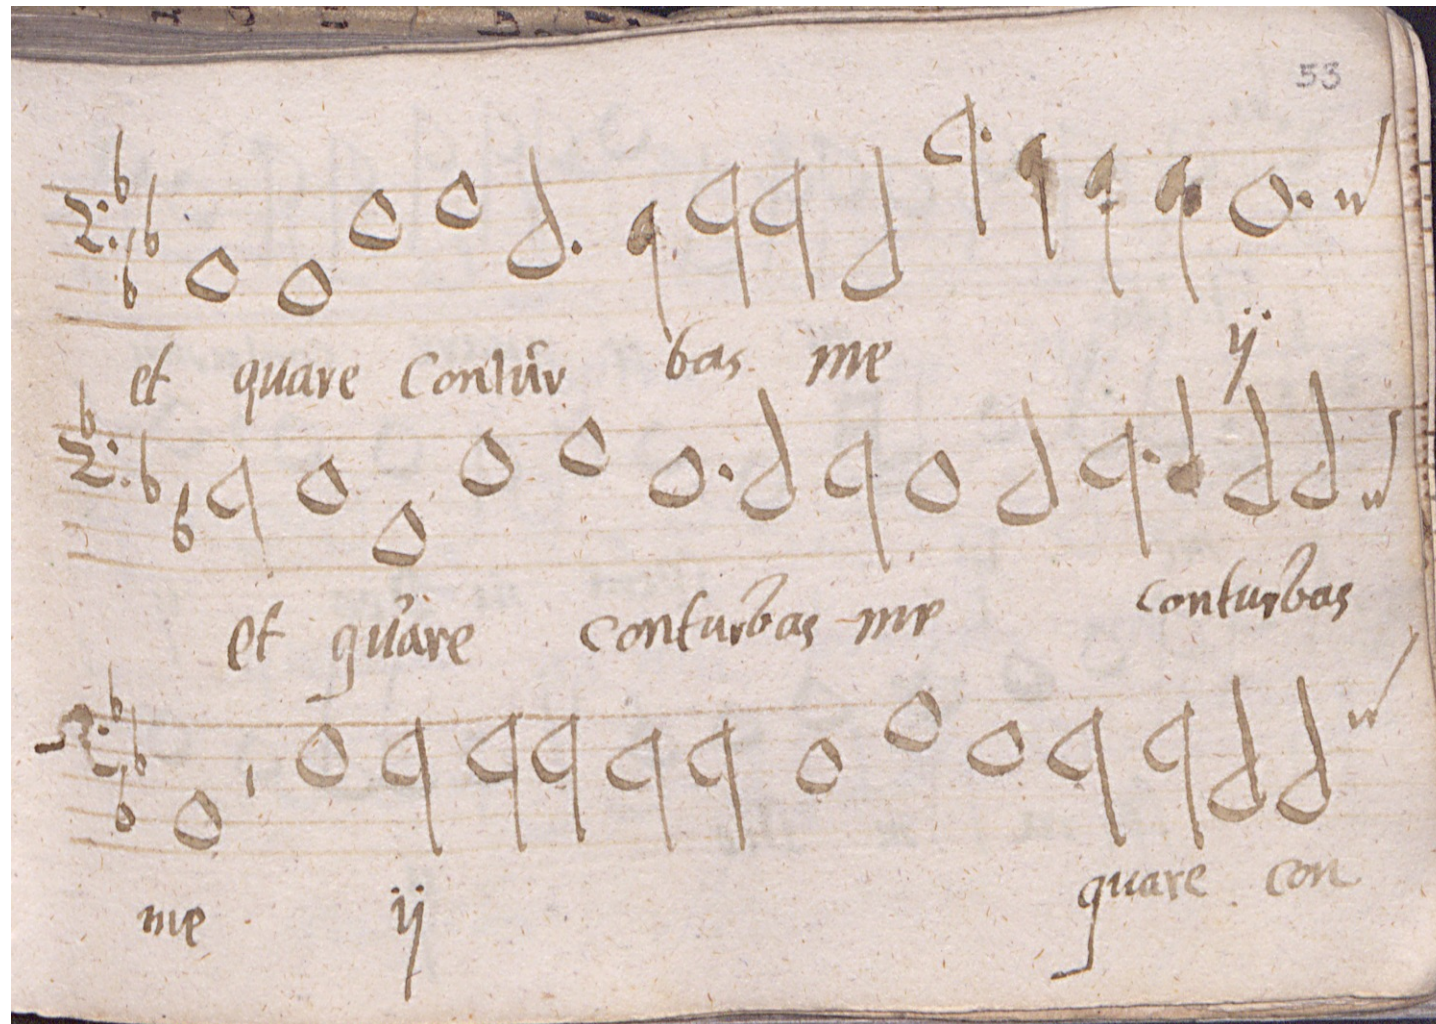 53
et quare Contur bas me ij
et quare conturbas me conturbas
me ij quare con